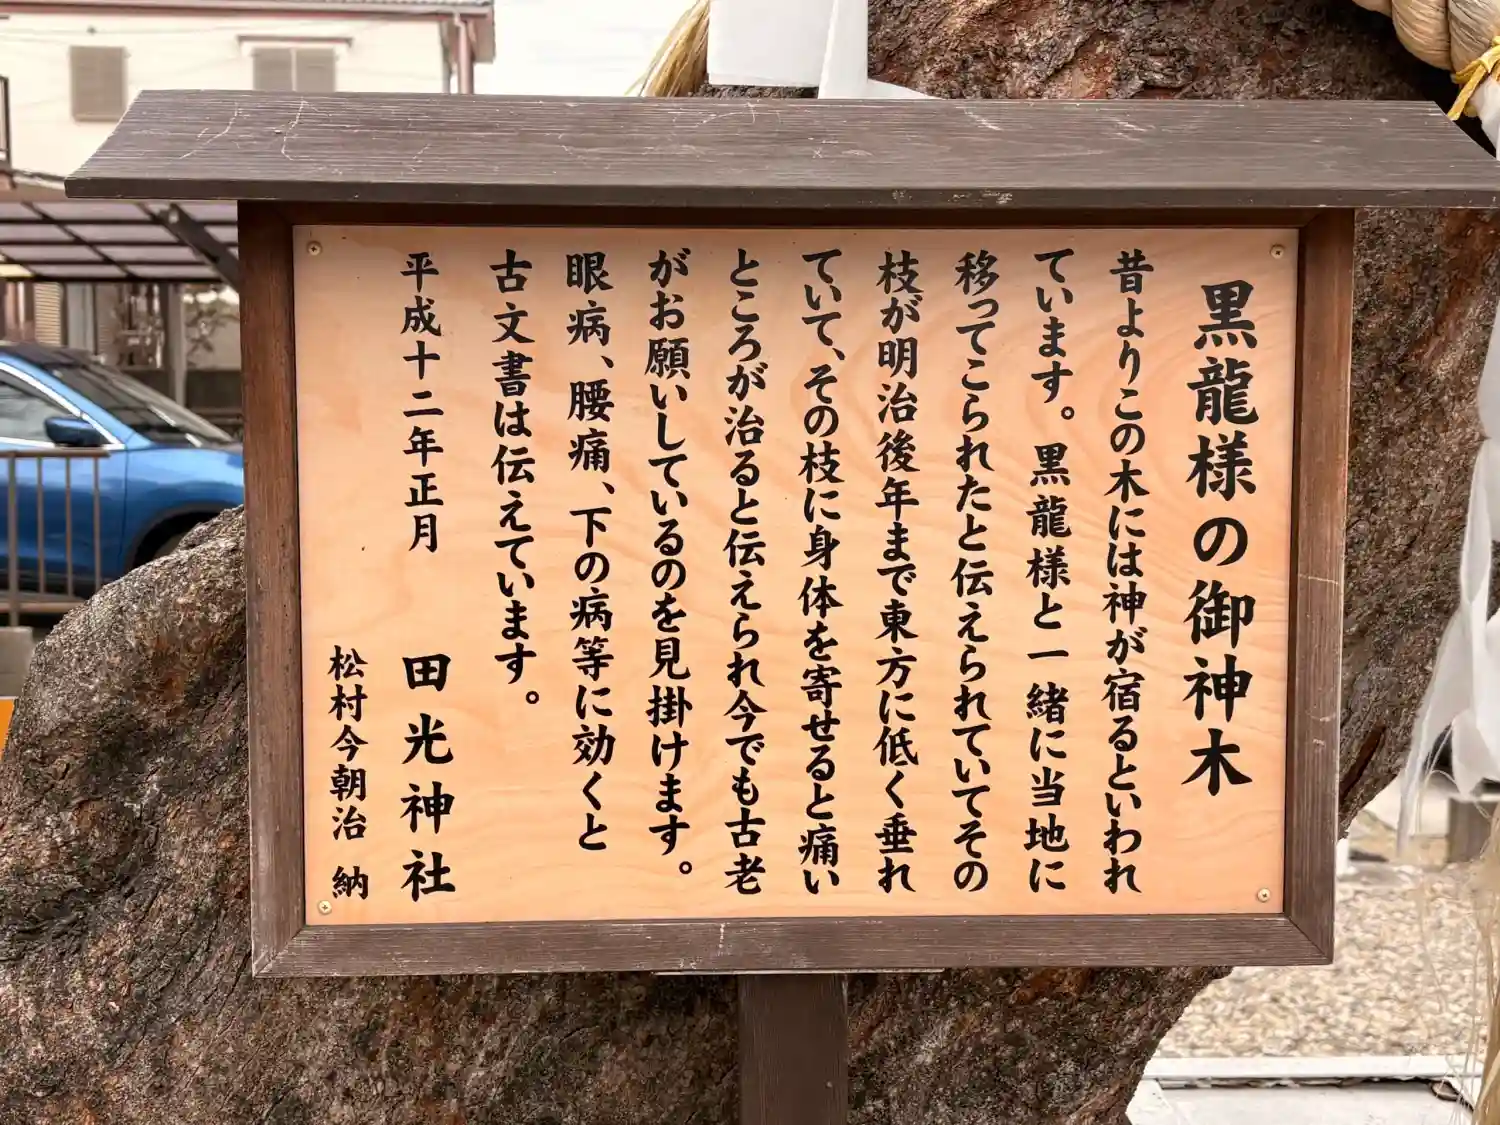 黒龍様の御神木
昔よりこの木には神が宿るといわれ
ています。黒龍様と一緒に当地に
移ってこられたと伝えられていてその
枝が明治後年まで東方に低く垂れ
ていて、その枝に身体を寄せると痛い
ところが治ると伝えられ今でも古老
がお願いしているのを見掛けます。
眼病、腰痛、下の病等に効くと
古文書は伝えています。
平成十二年正月
田光神社
松村今朝治 納